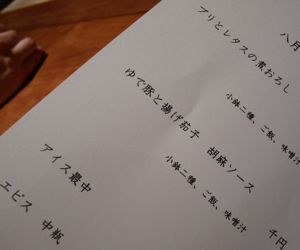 八月
ブリとレタスの煮おろし
小鉢二種、ご飯、味噌汁
ゆで豚と揚げ茄子 胡麻ソース
小鉢二種、ご飯、味噌汁
千円
アイス最中
エビス 中瓶